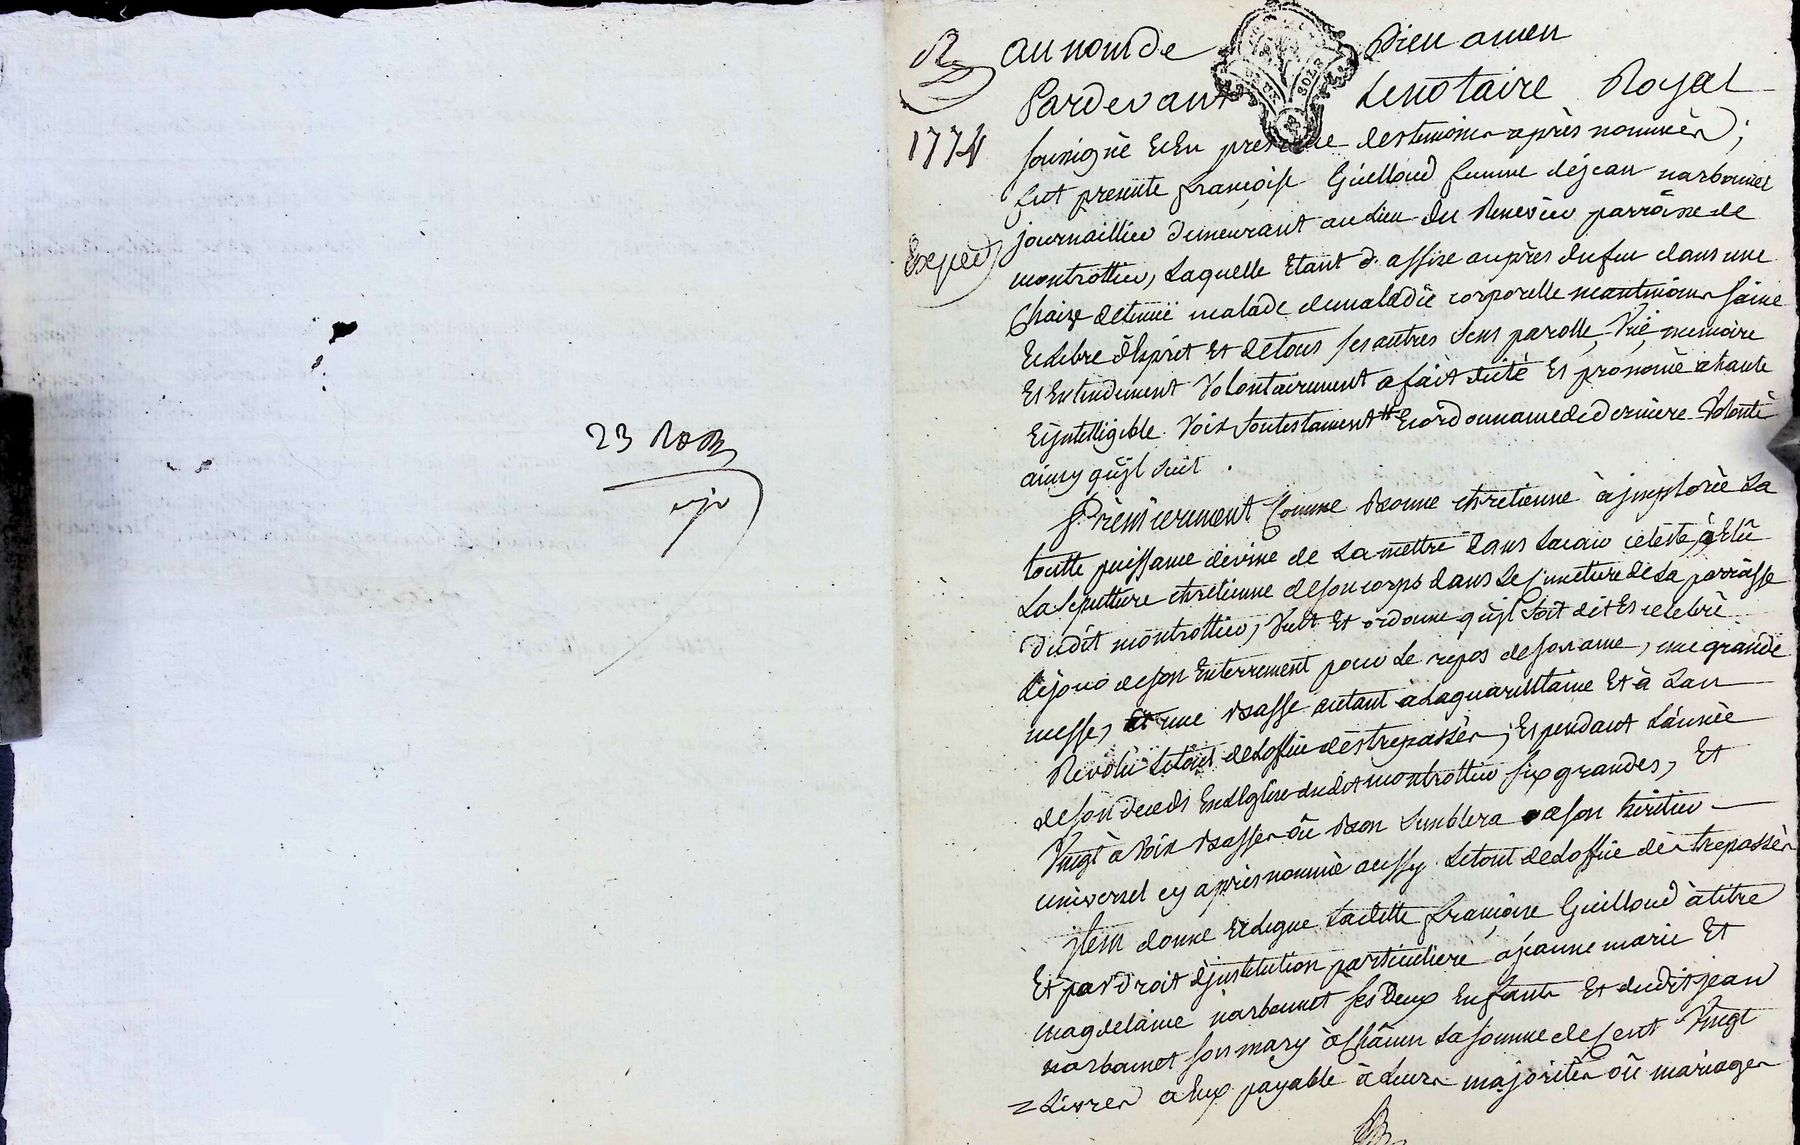 23 
R
1774
Exped
au nom de Dieu amen
Pardevant Le notaire Royal
soussigné et en presence des temoins après nommés ;
fut presente françoise Guilloud femme de jean narbonnet
journaillier demeurant au lieu du parroisse de
montrottier, Laquelle Etant assise auprès du feu dans une
chaize detenuë malade de maladie corporelle neantmoins saine
Et Libre d'Esprit Et de tous ses autres sens parolle, vuë, memoire
Et Entendement volontairement a fait dicté Et prononcé a haute
Et jntelligible voix son testament # Et ordonnance de derniere volonté
ainsy qu'jl suit .
Premierement Comme bonne chretienne à jmplorée La
toutte puissance divine de La mettre dans celeste, à Elû
La sepulture chretienne de son corps dans Le simetiere de La parroisse
dudit montrottier, veut Et ordonne qu'jl soit dit Et celebré
Le jour de son Enterrement pour Le repos de son ame, une grande
messe, Et une basse autant à La quarantaine Et à L'an
Revolu Le tout de L'office des trepassés ; Et pendant L'année
de son deceds En L'Eglise dudit montrottier six grandes, Et
vingt à voix basses où bon semblera a son heritier
universel cy après nommé aussy Le tout de L'office des trepassés
jtem donne Et Legue Laditte françoise Guilloud à titre
Et par droit d'jnstitution particuliere a jeanne marie Et
magdelaine narbonnet ses deux Enfants Et dudit jean
narbonnet son mary à chacun La somme de cent vingt
= Livres a Eux payable à Leurs majorités où mariages